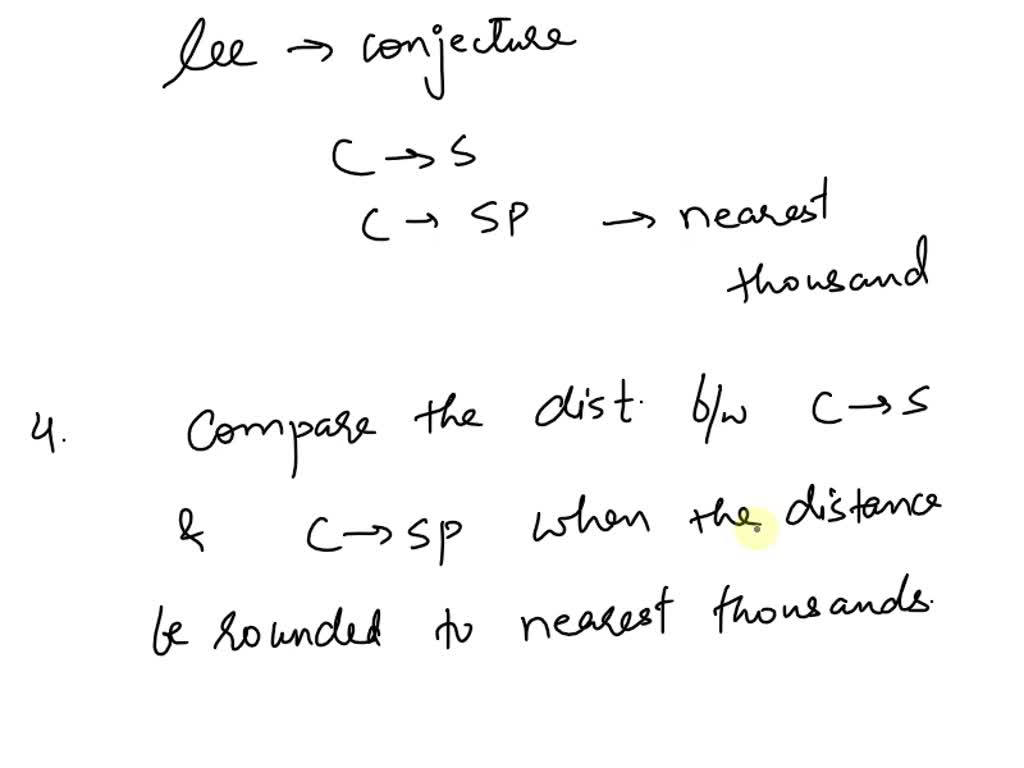 lee → conjecture
C → S
C → SP → nearest
thousand
4. Compare the dist. b/w C → S
& C → SP when the distance
be rounded to nearest thousands.